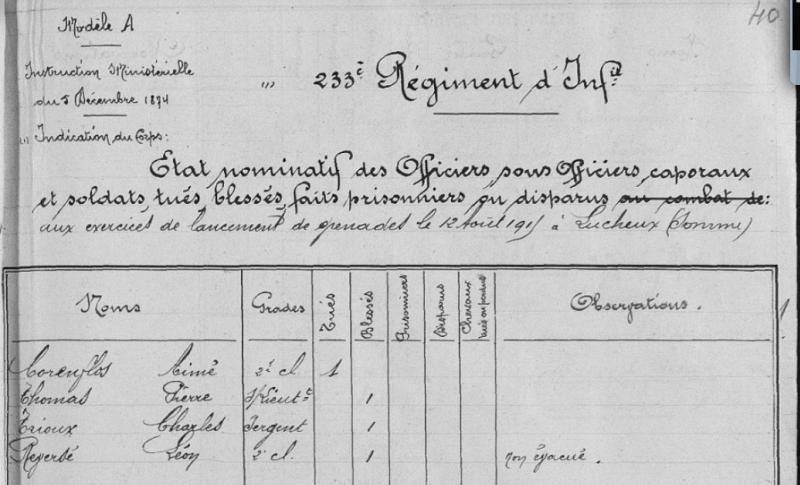 40
Modèle A
Instruction Ministérielle
du 5 Décembre 1874
(1) Indication du Corps:
(1) 233e Régiment d'Infie
Etat nominatif des Officiers, sous Officiers, caporaux
et soldats, tués, blessés, faits prisonniers ou disparus au combat de:
aux exercices de lancement de grenades le 12 Août 1915 à Lucheux (Somme)
Noms Grades Tués Blessés Prisonniers Disparus Chevaux tués ou perdus Observations.
Corenflos Aimé 2e cl. 1
Thomas Pierre S/Lieutt 1
Trioux Charles Sergent 1
Léon 2e cl. 1 non évacué.